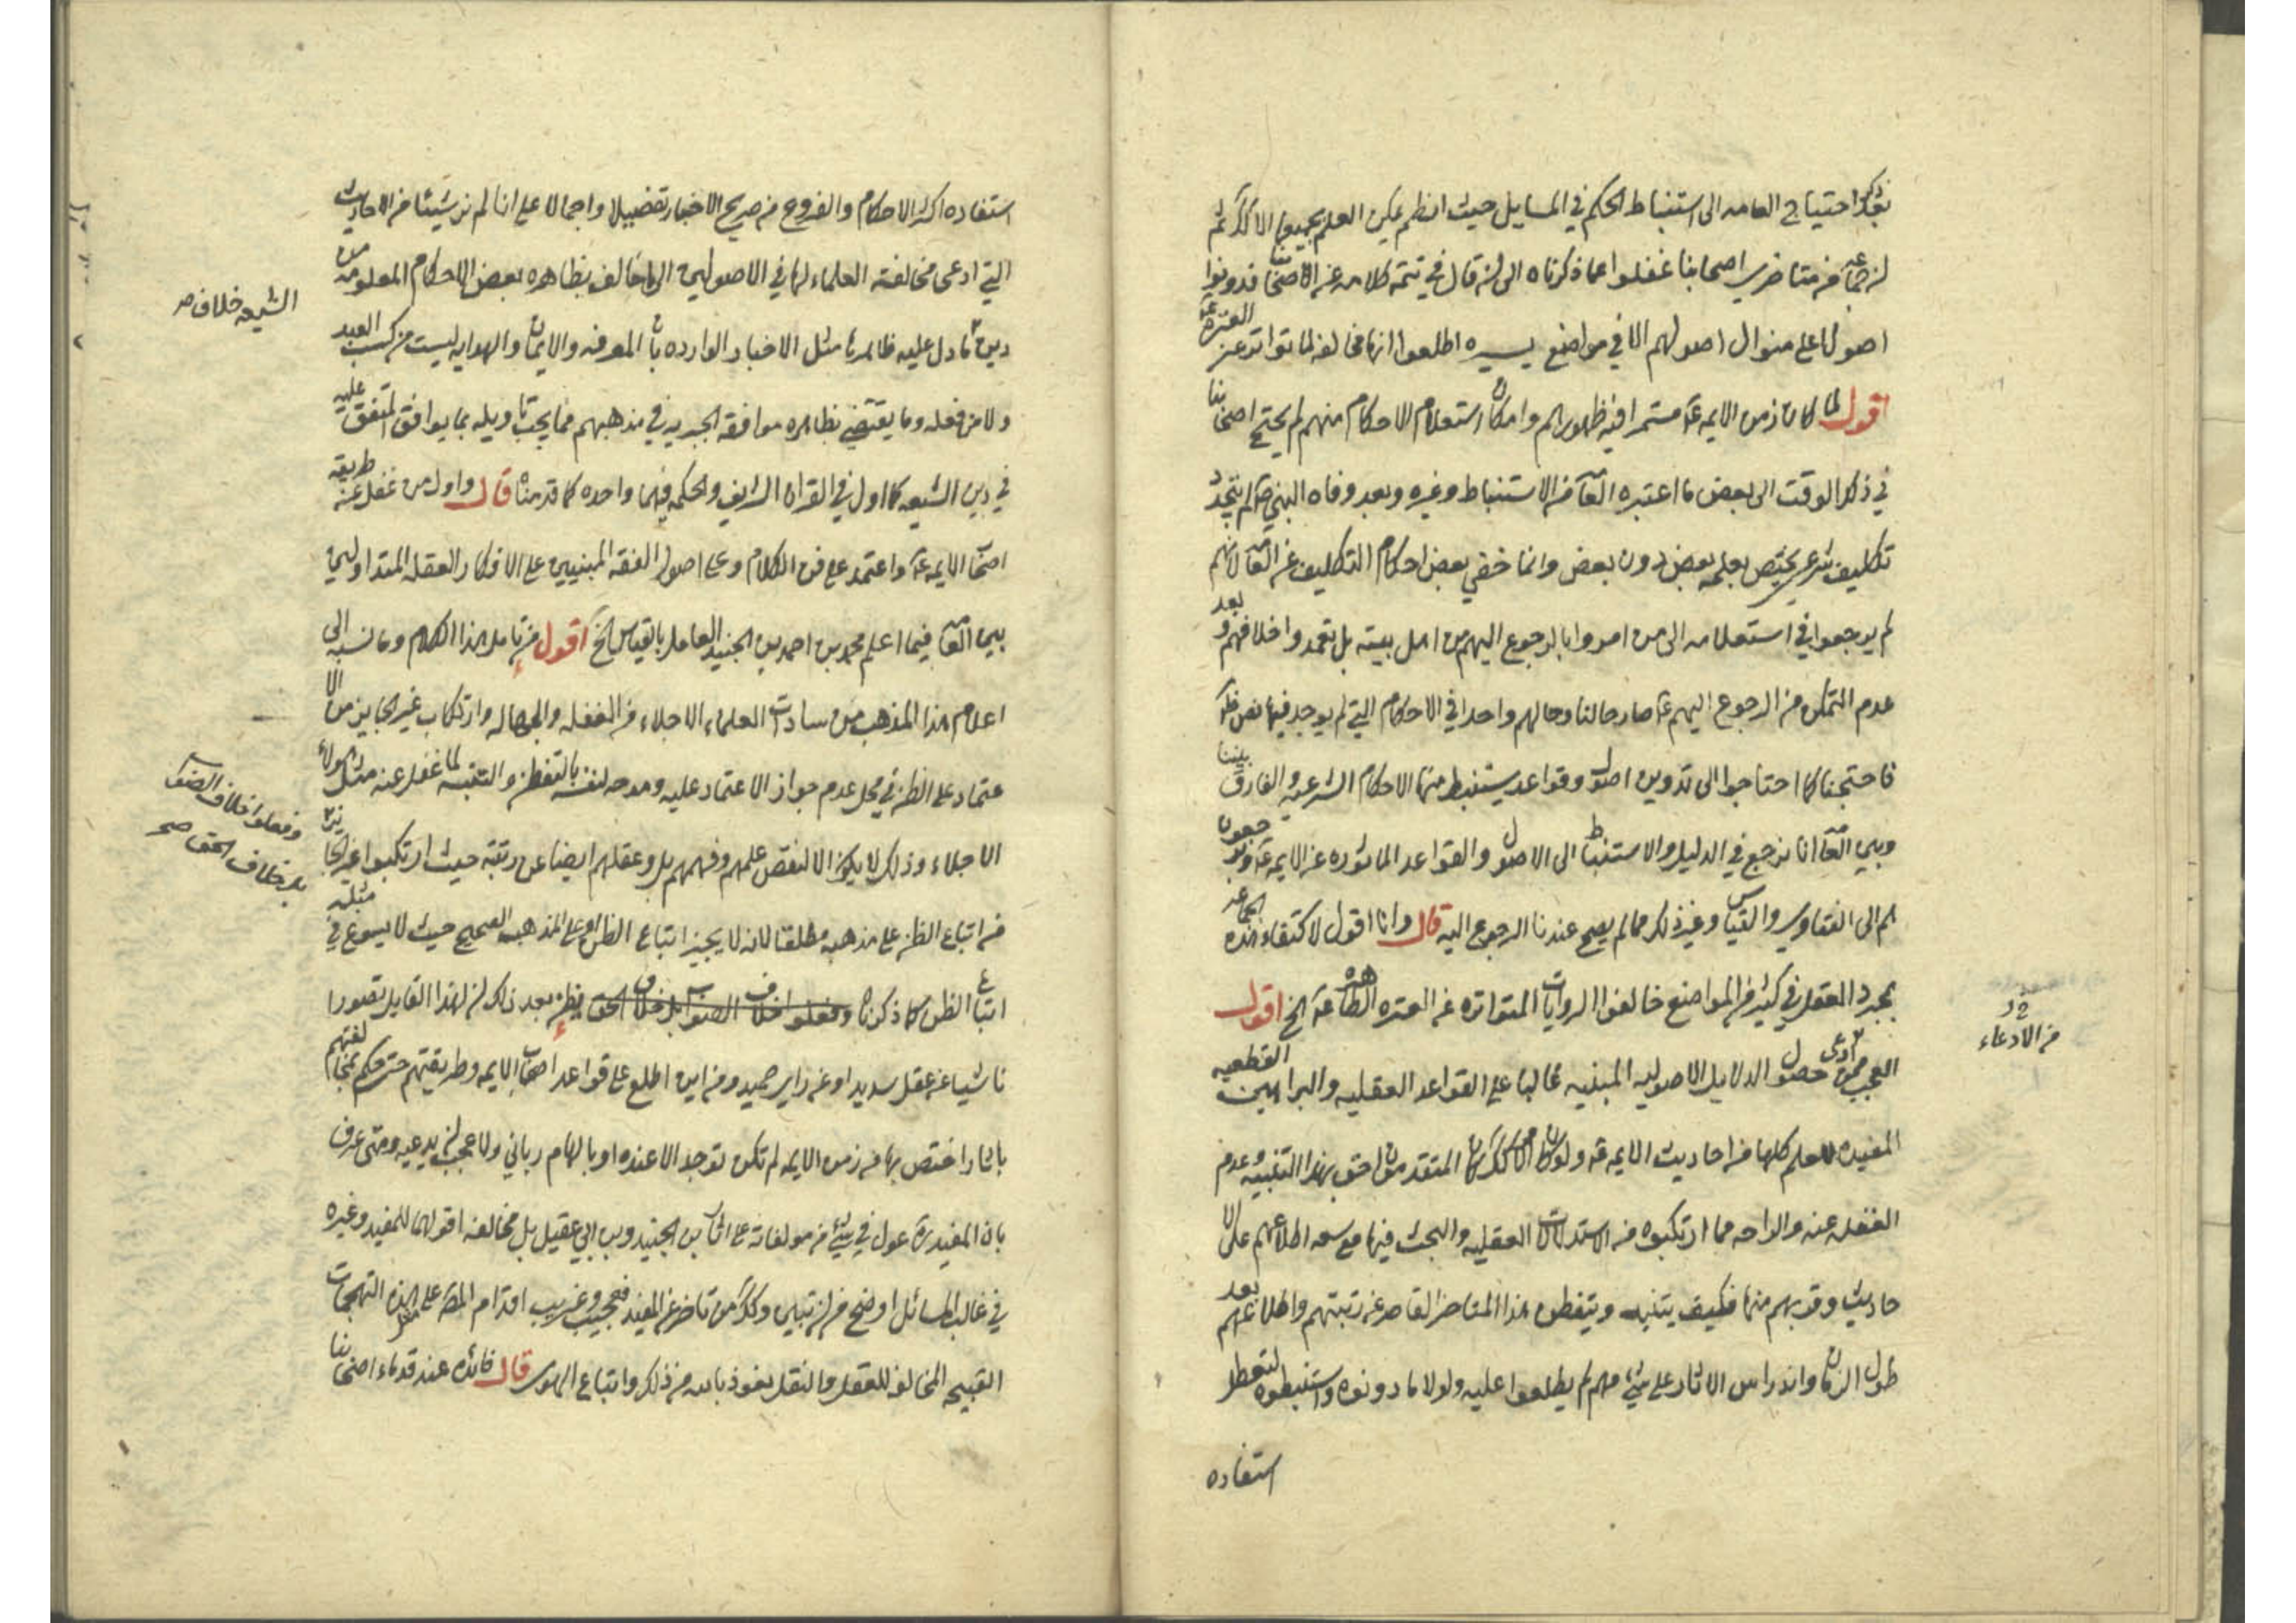 بذلك احتياج العامه الى استنباط الحكم في المسايل حيث انظم يكن العلم بجميعها الا كذلك ثم
ان جماعه من متاخري اصحابنا غفلوا عما ذكرناه الى ان قال في تتمة كلامه عن الاصحاب فدونوا
اصولا على منوال اصولهم الا في مواضع يسيره اطلعوا انها مخالفه لما تواتر عن العترة
اقول لما كان زمن الايمه ع مستمرا فيه ظهورهم وامكان استعلام الاحكام منهم لم يحتج اصحابنا
في ذلك الوقت الى بعض ما اعتبره العامه من الاستنباط وغيره وبعد وفاه النبي ص لم يتجدد
تكليف شرعي يختص بعلمه بعض دون بعض وانما خفي بعض احكام التكليف عن العامه لانهم
لم يرجعوا في استعلامه الى من امروا بالرجوع اليهم من اهل بيته بل تعمدوا خلافهم وبعد
عدم التمكن من الرجوع اليهم ع صار حالنا وحالهم واحدا في الاحكام التي لم يوجد فيها نص ظاهر
فاحتجنا كما احتاجوا الى تدوين اصول وقواعد يستنبط منها الاحكام الشرعيه والفارق بيننا
وبين العامه انا نرجع في الدليل والاستنباط الى الاصول والقواعد الماثوره عن الايمه ع ورجوعهم
هم الى الفتاوي والقياس وغير ذلك مما لم يصح عندنا الرجوع اليه قال وانا اقول لاكتفاء هذه الجماعه
بمجرد العقل في كثير من المواضع خالفوا الروايات المتواتره عن العتره الطاهره ع الخ اقول
العجب ممن ادعى حصول الدلايل الاصوليه المبنيه غالبا على القواعد العقليه والبراهين القطعيه
من الادعاء
المفيده للعلم كلها من احاديث الايمه ع ولو كان الامر كذلك كان المتقدمون احق بهذا التنبيه وعدم
الغفله عنه والراحه مما ارتكبوه من الاستدلالات العقليه والبحث فيها مع سعه اطلاعهم على الا
حاديث وقربهم منها فكيف يتنبه ويتفطن هذا المتاخر القاصر عن رتبتهم واطلاعهم بعد
طول الزمان واندراس الاثار على شيء مهم لم يطلعوا عليه ولولا ما دونوه واستنبطوه لتعطل
استفاده
استفاده اكثر الاحكام والفروع من صريح الاخبار تفصيلا واجمالا على انا لم نر شيئا من الاحاديث
التي ادعى مخالفته العلماء لها في الاصولين الا ما خالف بظاهره بعض الاحكام المعلومه من
الشيعه خلاف صح
دين ما دل عليه ظاهرها مثل الاخبار الوارده بان المعرفه والايمان والهدايه ليست من كسب العبد
ولا من فعله وما يقتضي بظاهره موافقه الجبريه في مذهبهم مما يجب تاويله بما يوافق المتفق عليه
في دين الشيعه كما اول في القران الشريف والحكم فيهما واحده كما قدمناه قال واول من غفل عن طريقه
اصحاب الايمه ع واعتمد على فن الكلام وعلى اصول الفقه المبنيين على الافكار العقليه المتداولين
بين العامه فيما اعلم محمد بن احمد بن الجنيد العامل بالقياس الخ اقول من تامل هذا الكلام وما نسبه الى
اعلام هذا المذهب من سادات العلماء الاجلاء من الغفله والجهاله وارتكاب غير الجايز من الا
عتماد على الظن في محل عدم جواز الاعتماد عليه ومدحه لنفسه بالتفطن والتنبه لما غفل عنه مثل هولاء
الاجلاء وذلك لا يكون الا لنقص علمهم وفهمهم بل وعقلهم ايضا عن رتبته حيث ارتكبوا غير الجايز
وفعلوا خلاف الصواب
بل خلاف الحق صح
من اتباع الظن على مذهبه مطلقا لانه لا يجيز اتباع الظن او على المذهب الصحيح حيث لا يسوغ في مثله
اتباع الظن كما ذكرنا وفعلوا خلاف الصواب بل خلاف الحق يظهر بعد ذلك ان لهذا القايل تصورا
ناشيا عن عقل سديد او عن راي حميد ومن اين اطلع على قواعد اصحاب الايمه وطريقتهم حتى حكم بمخالفتهم
باثار اختص بها من زمن الايمه لم تكن توجد الا عنده او بالهام رباني ولا عجب ان يدعيه ومتى عرف
بان المفيد ره عول في شيء من مولفاته على كتاب ابن الجنيد وبن ابي عقيل بل مخالفه اقوالهما للمفيد وغيره
في غالب المسائل اوضح من ان تبين وكذلك من تاخر عن المفيد فعجيب وغريب اقدام المص على مثل هذه التهجمات
القبيحه المخالفه للعقل والنقل نعوذ بالله من ذلك واتباع الهوى قال فائده عند قدماء اصحابنا